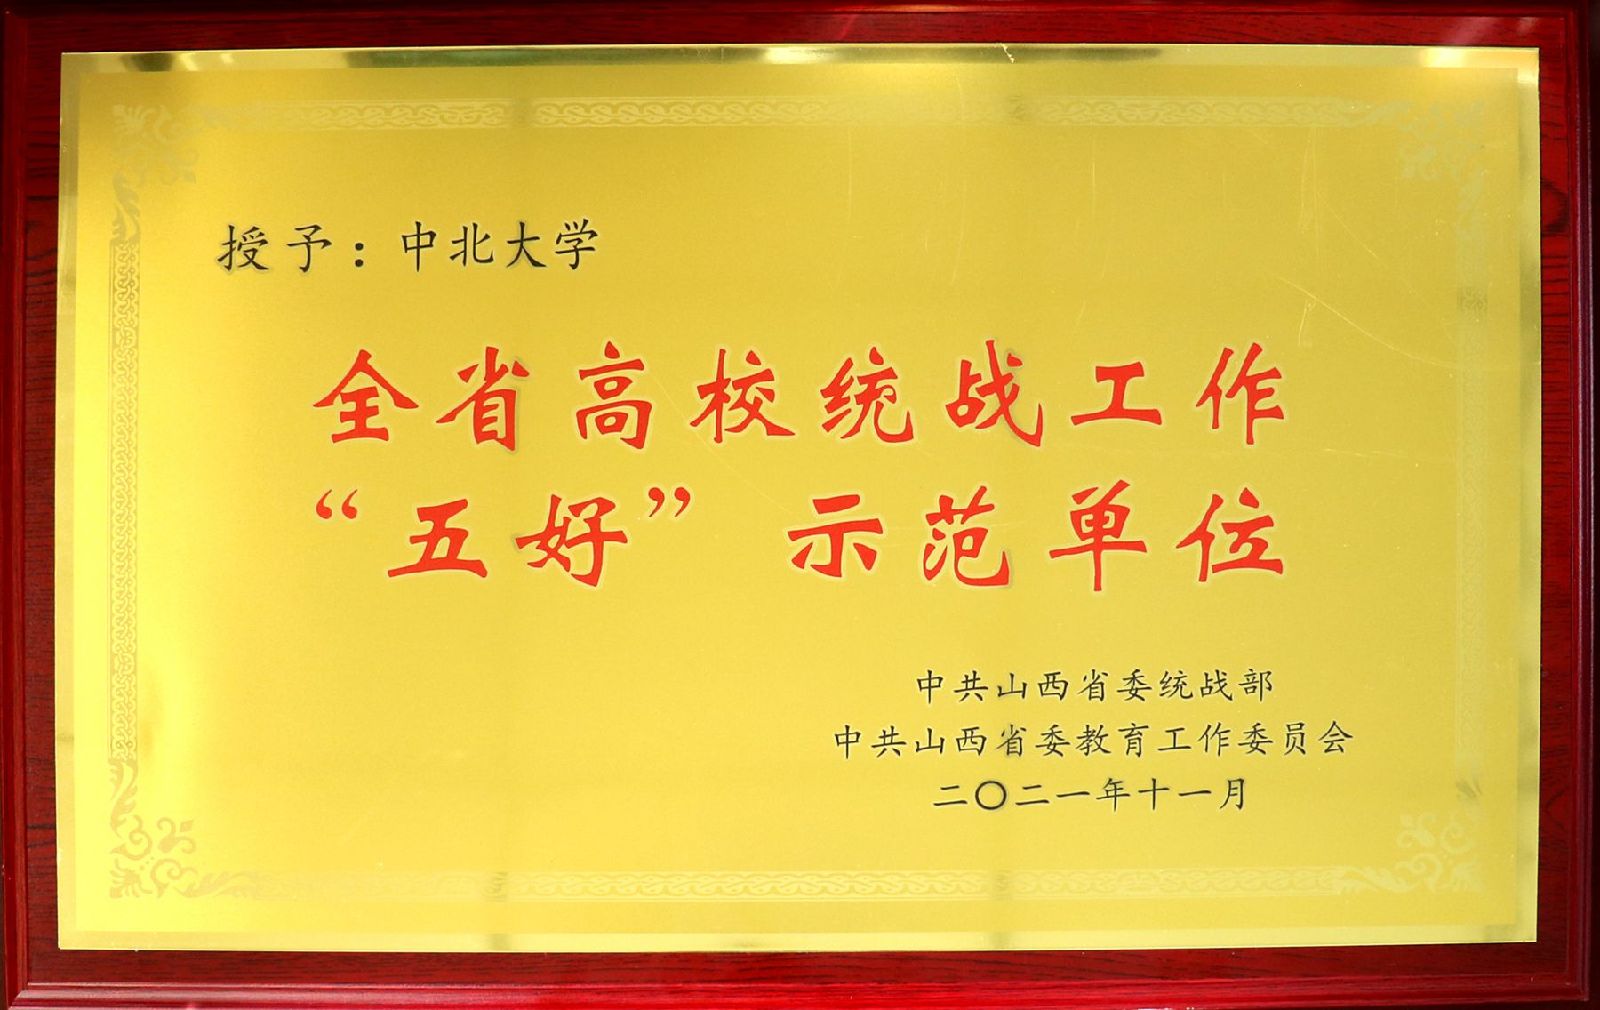 授予：中北大学
全省高校统战工作
“五好”示范单位
中共山西省委统战部
中共山西省委教育工作委员会
二〇二一年十一月